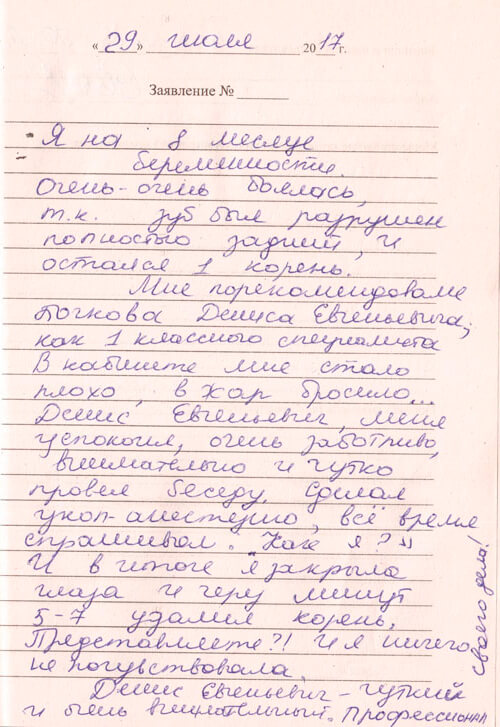 «29» июля 2017г.
Заявление №
Я на 8 месяце
беременности.
Очень-очень боялась,
т.к. зуб был разрушен
полностью задний, и
остался 1 корень.
Мне порекомендовали
Дениса Евгеньевича,
как 1 классного специалиста
В кабинете мне стало
плохо, в жар бросило...
Денис Евгеньевич, меня
успокоил, очень заботливо,
внимательно и чутко
провел беседу. Сделал
укол-анестезию, всё время
спрашивал. Как я?
И в итоге я закрыла
глаза и через минут
5-7 удалил корень.
Представляете?! И я ничего
не почувствовала.
Денис Евгеньевич - чуткий
и очень внимательный. Профессионал
своего дела!